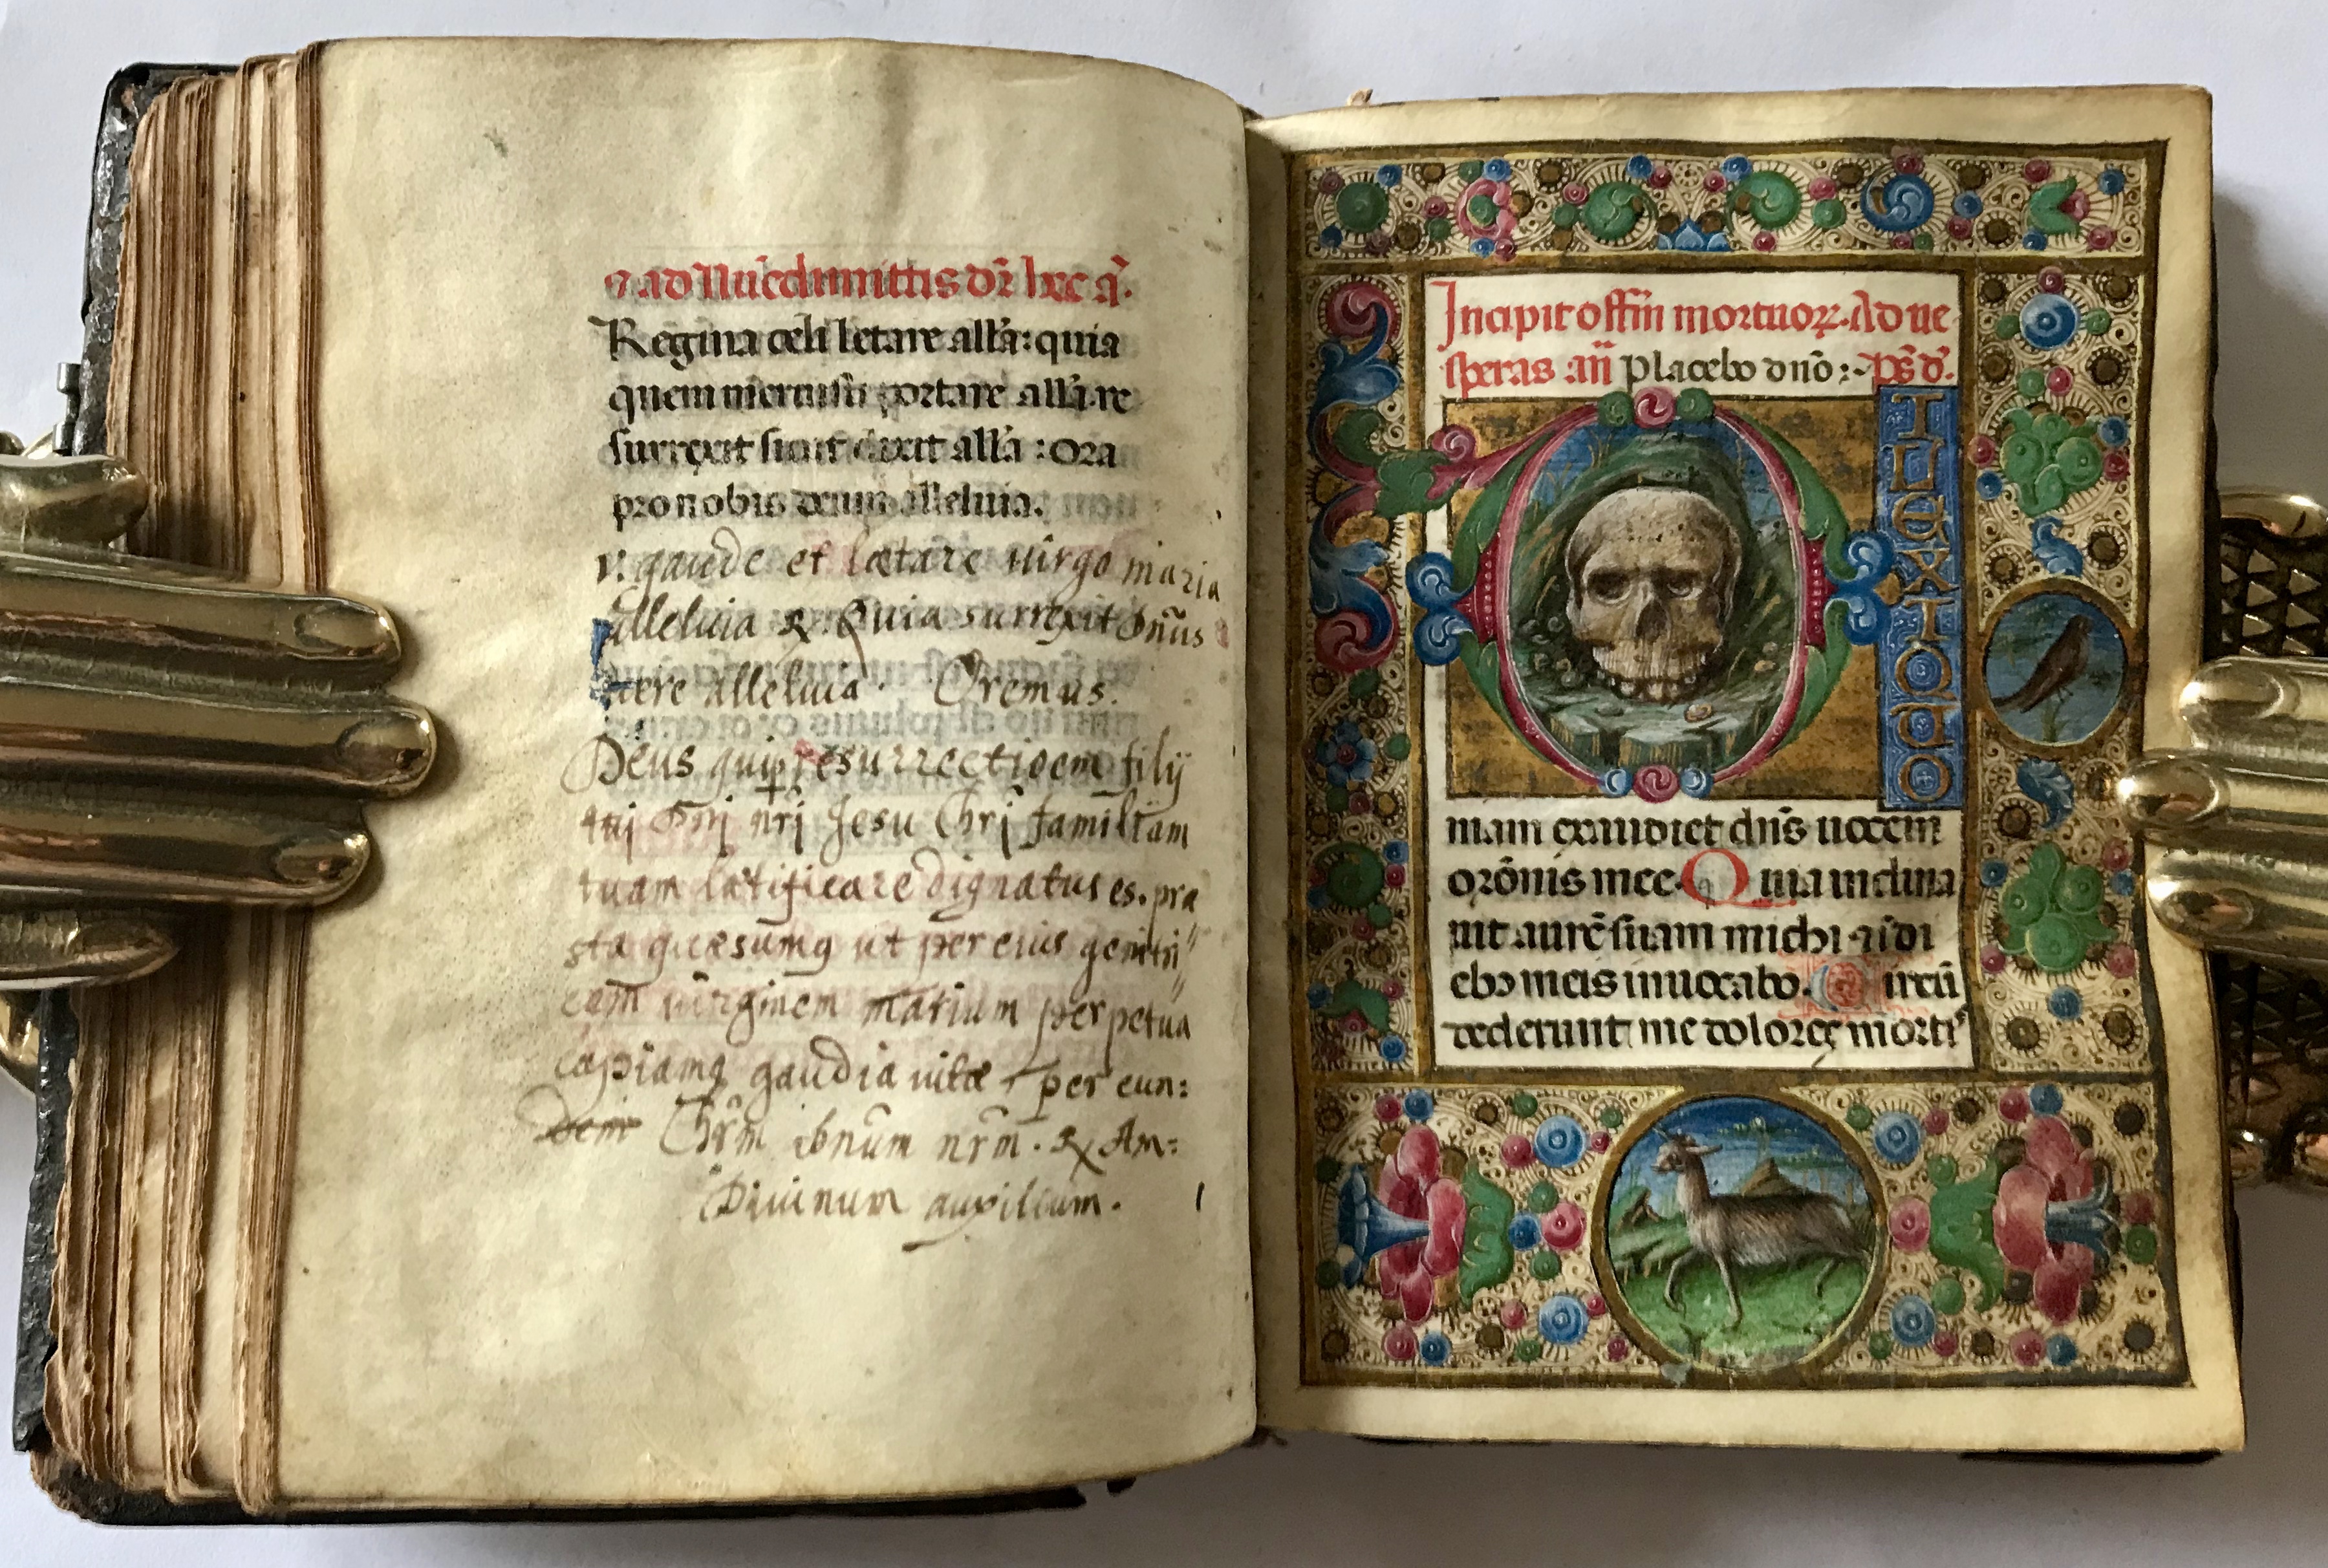 ad Nūcdimittis dr̄ hec ā.
Regina celi letare all'a: quia
quem meruisti portare all'a. re
surrexit sicut dixit all'a: Ora
pro nobis deum alleluia.
v. gaude et lætare uirgo maria
alleluia ℟. Quia surrexit Dn̄us
uere alleluia. Oremus.
Deus qui p resurrectioem filij
tuj Dn̄j nr̄j Jesu Chrj̄ familiam
tuam lætificare dignatus es. præ
sta quæsumq ut per eius genitri"
cem uirginem mariam perpetuæ
capiamq gaudia uitæ per eun:
dem Chr̄m dn̄um nr̄m. ℟ Am:
Diuinum auxilium.
Incipit offm̄ mortuoꝝ. Ad ue
speras. an̄ Placebo dn̄o: ps̄ d̄.
DILEXI QUO
niam exaudiet dn̄s uocem
orōnis mee. Quia inclina
uit aurē suam michi et i di
ebꝫ meis inuocabo. Circū
dederunt me dolores mortis